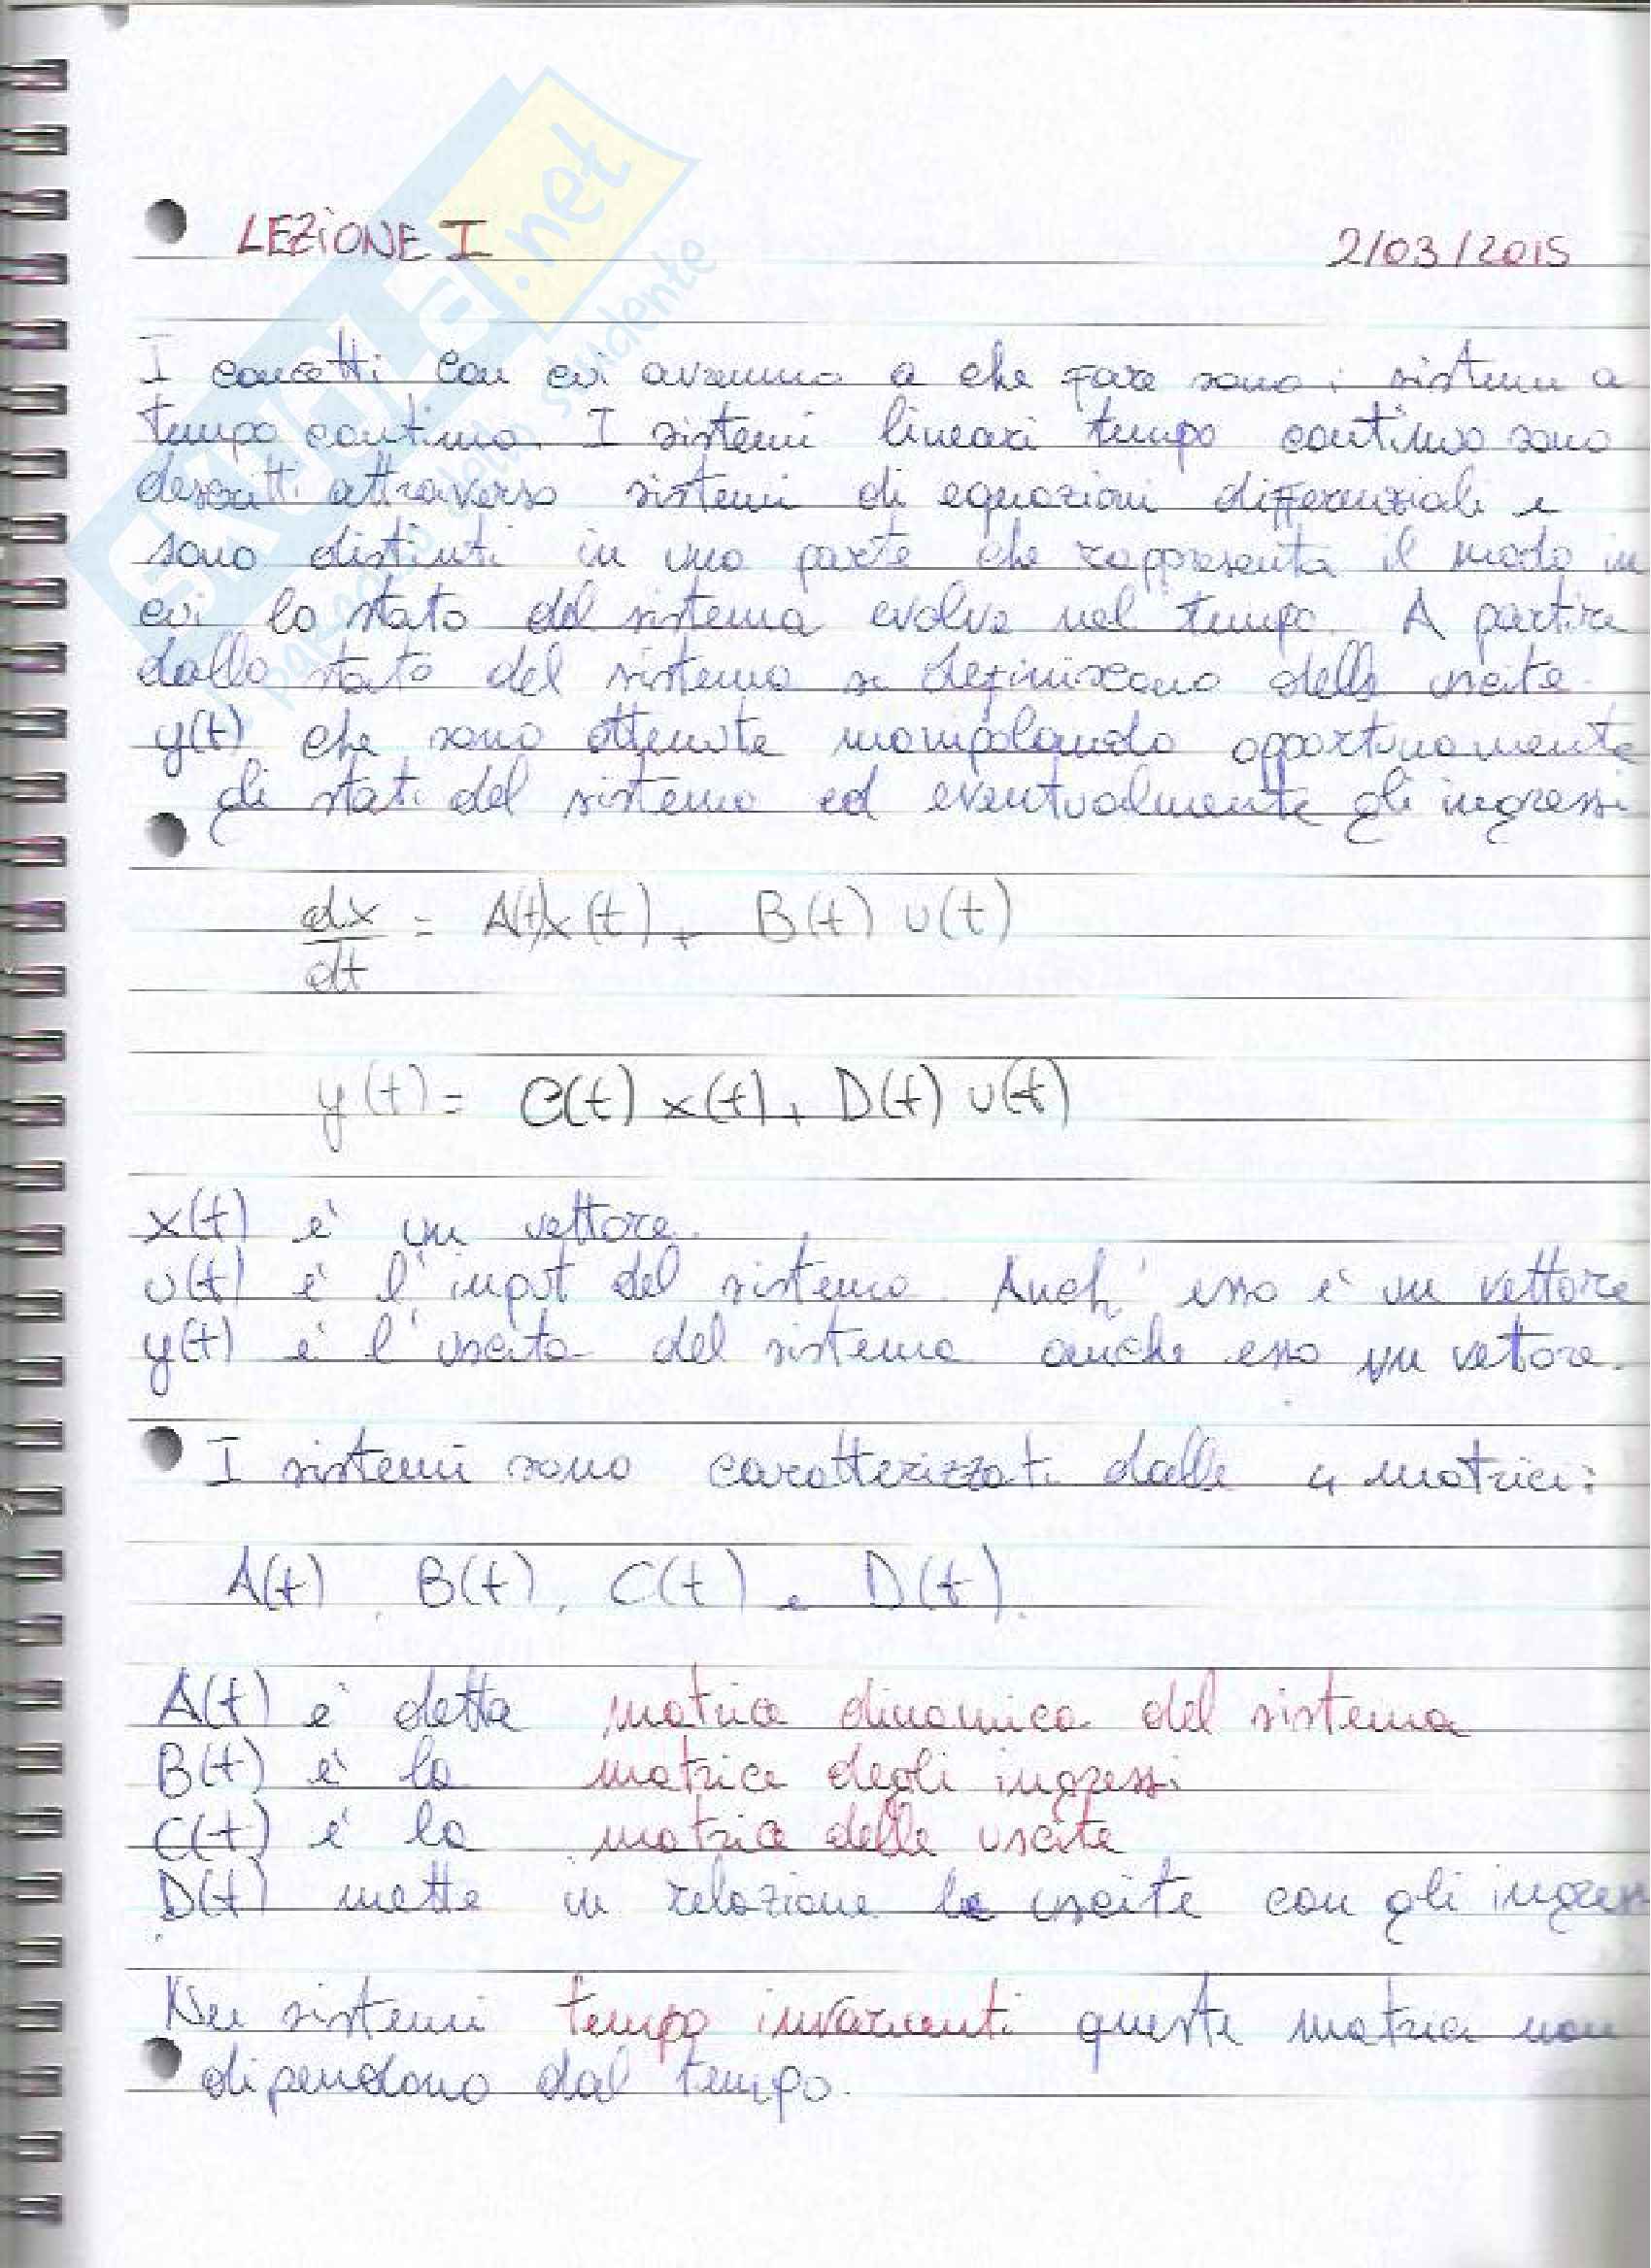 SKUOLA.net
paradiso dello studente
LEZIONE I 2/03/2015
I concetti con cui avremmo a che fare sono i sistemi a
tempo continuo. I sistemi lineari tempo continuo sono
descritti attraverso sistemi di equazioni differenziali e
sono distinti in una parte che rappresenta il modo in
cui lo stato del sistema evolve nel tempo. A partire
dallo stato del sistema si definiscono delle uscite
y(t) che sono ottenute manipolando opportunamente
gli stati del sistema ed eventualmente gli ingressi
dx/dt = A(t)x(t) + B(t) u(t)
y(t) = C(t) x(t) + D(t) u(t)
x(t) è un vettore.
u(t) è l'input del sistema. Anch' esso è un vettore
y(t) è l'uscita del sistema anche esso un vettore.
I sistemi sono caratterizzati dalle 4 matrici:
A(t), B(t), C(t) e D(t).
A(t) è detta matrice dinamica del sistema
B(t) è la matrice degli ingressi
C(t) è la matrice delle uscite
D(t) mette in relazione le uscite con gli ingres
Nei sistemi tempo invarianti queste matrici non
dipendono dal tempo.